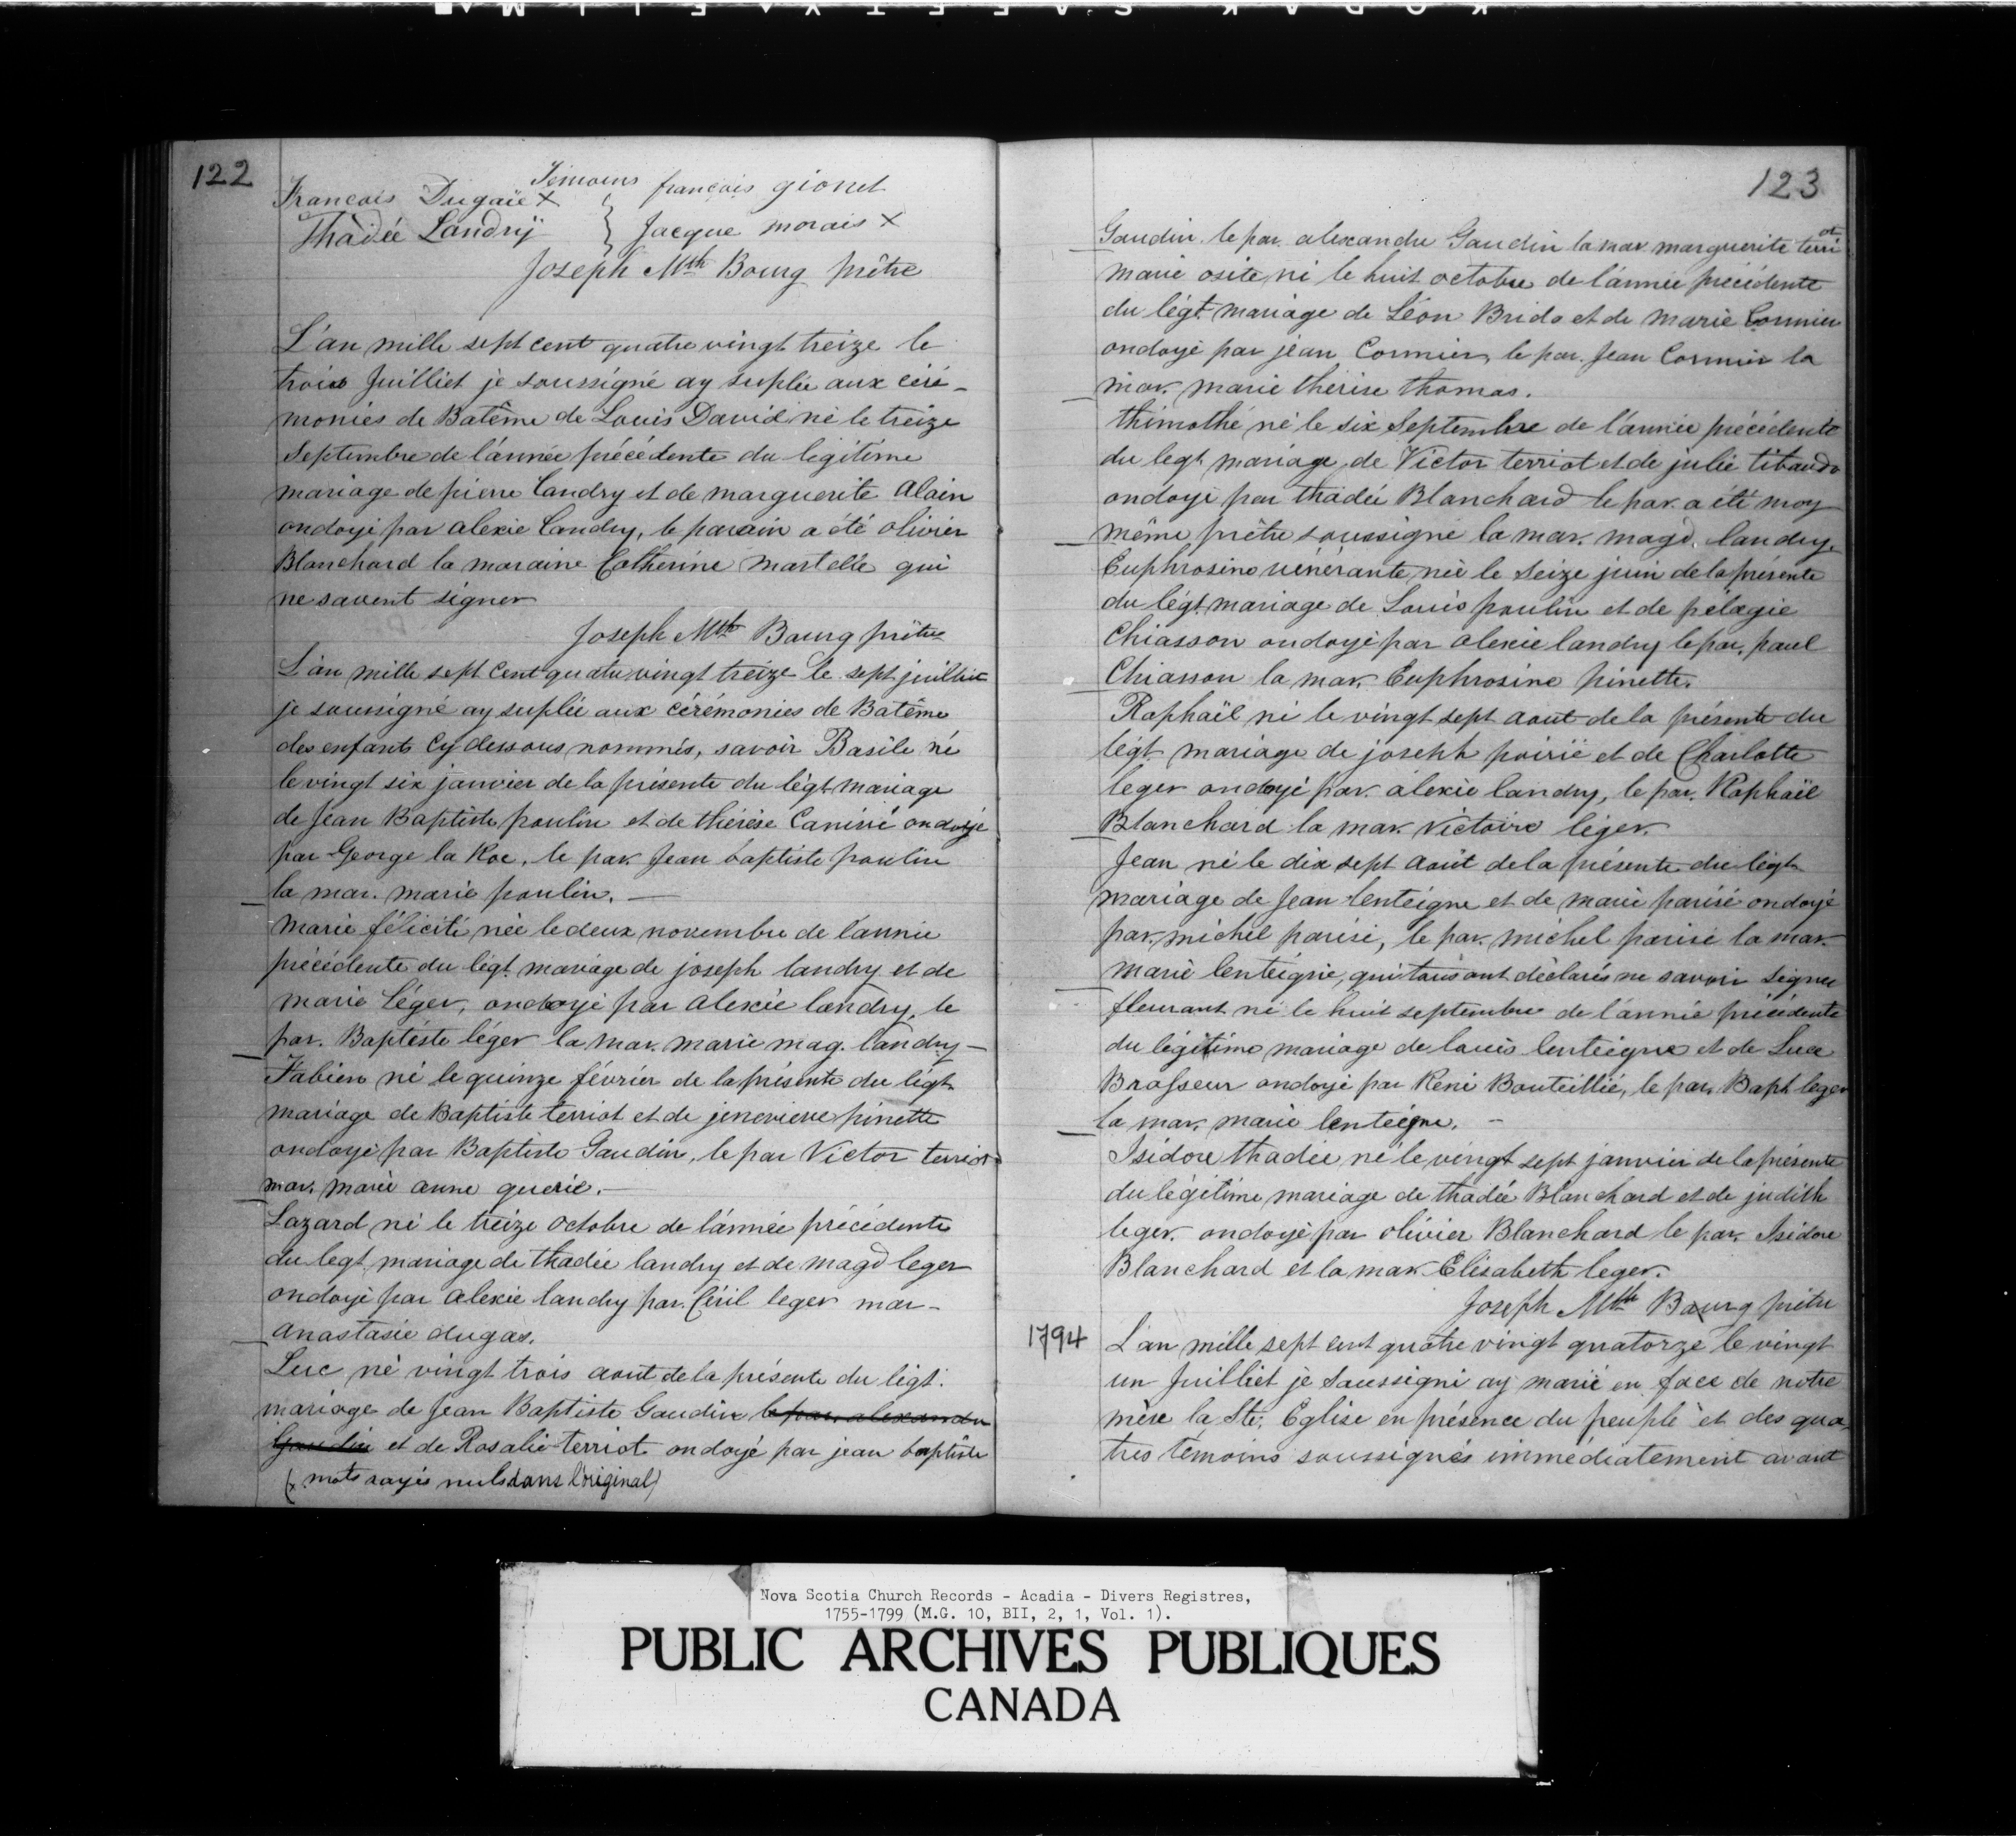 122
Témoins
François Dugaie x } françois gionet
Thadée Landrÿ } Jacque morais x
Joseph Mth Bourg prêtre
L'an mille sept cent quatre vingt treize le
trois Juilliet je soussigné ay suplée aux céré-
monies de Batême de Louis David né le treize
Septembre de l'année précédente du légitime
mariage de pierre Landry et de marguerite Alain
ondoyé par alexie Landry, le parain a été olivier
Blanchard la maraine Catherine martelle qui
ne savent signer
Joseph Mth Bourg prêtre
L'an mille sept cent quatre vingt treize le sept juilliet
je soussigné ay suplée aux cérémonies de Batême
des enfants cy dessous nommés, savoir Basile né
le vingt six janvier de la présente du légt mariage
de Jean Baptiste poulin et de thérèse Canisié ondoyé
par George la Roc, le par Jean baptiste poulin
la mar. marie poulin. —
Marie félicité née le deux novembre de l'année
précédente du légt. mariage de joseph landry et de
marie Léger, ondoyé par alexie landry, le
par. Baptéste léger la mar. marie mag. Landry —
Fabien né le quinze février de la présente du légt.
mariage de Baptiste terriot et de jenevieve pinette
ondoyé par Baptiste Gaudin, le par Victor terriot
mar. marie anne guerié. —
Lazard né le treize octobre de l'année précédente
du legt mariage de thadée landry et de magd leger
ondoyé par alexie landry par. Ciril leger mar-
anastasie dugas.
Luc né vingt trois aout de la présente du légt.
mariage de Jean Baptiste Gaudin le par alexandre
Gaudin et de Rosalie terriot ondoyé par jean baptiste
(x mots rayés nuls dans l'original)
123
Gaudin le par. alexandre Gaudin la mar marguerite terriot
marie osite né le huit octobre de l'année précédente
du légt mariage de Léon Brido et de marie Cormier
ondoyé par jean Cormier, le par. Jean Cormier la
mar. marie thérèse thomas.
thimothé né le six Septembre de l'année précédente
du legt mariage de Victor terriot et de julie tibaudo
ondoyé par thadée Blanchard le par. a été moy
même prêtre soussigné la mar. magd. landry.
Euphrosine vénérante, née le seize juin de la presente
du légt. mariage de Louis poulin et de pélagie
Chiasson ondoyé par alexie landry le par. paul
Chiasson la mar. Euphrosine pinette.
Raphaël né le vingt sept aout de la présente du
légt. mariage de joseph poirié et de Charlotte
leger ondoyé par. alexie landry, le par. Raphaël
Blanchard la mar. Victoire léger.
Jean né le dix sept août de la présente du légt
mariage de Jean lenteigne et de marie parisé ondoyé
par. michel parisé, le par. michel parisé la mar.
marie lenteigne, qui tous ont déclarés ne savoir signer
fleurant né le huit septembre de l'année précédente
du légitime mariage de louis lenteigne et de Luce
Brasseur ondoyé par René Bouteillié, le par. Bapt leger
la mar. marie lenteigne. —
Isidore thadée né le vingt sept janvier de la présente
du légitime mariage de thadée Blanchard et de judith
leger. ondoyé par olivier Blanchard le par. Isidore
Blanchard et la mar. Elisabeth leger.
Joseph Mth Bourg prêtre
1794 L'an mille sept cent quatre vingt quatorze le vingt
un Juilliet je soussigné ay marié en face de notre
mère la Ste. Eglise en présence du peuple et des qua
tres témoins soussignés immédiatement avant
Nova Scotia Church Records - Acadia - Divers Registres,
1755-1799 (M.G. 10, BII, 2, 1, Vol. 1).
PUBLIC ARCHIVES PUBLIQUES
CANADA